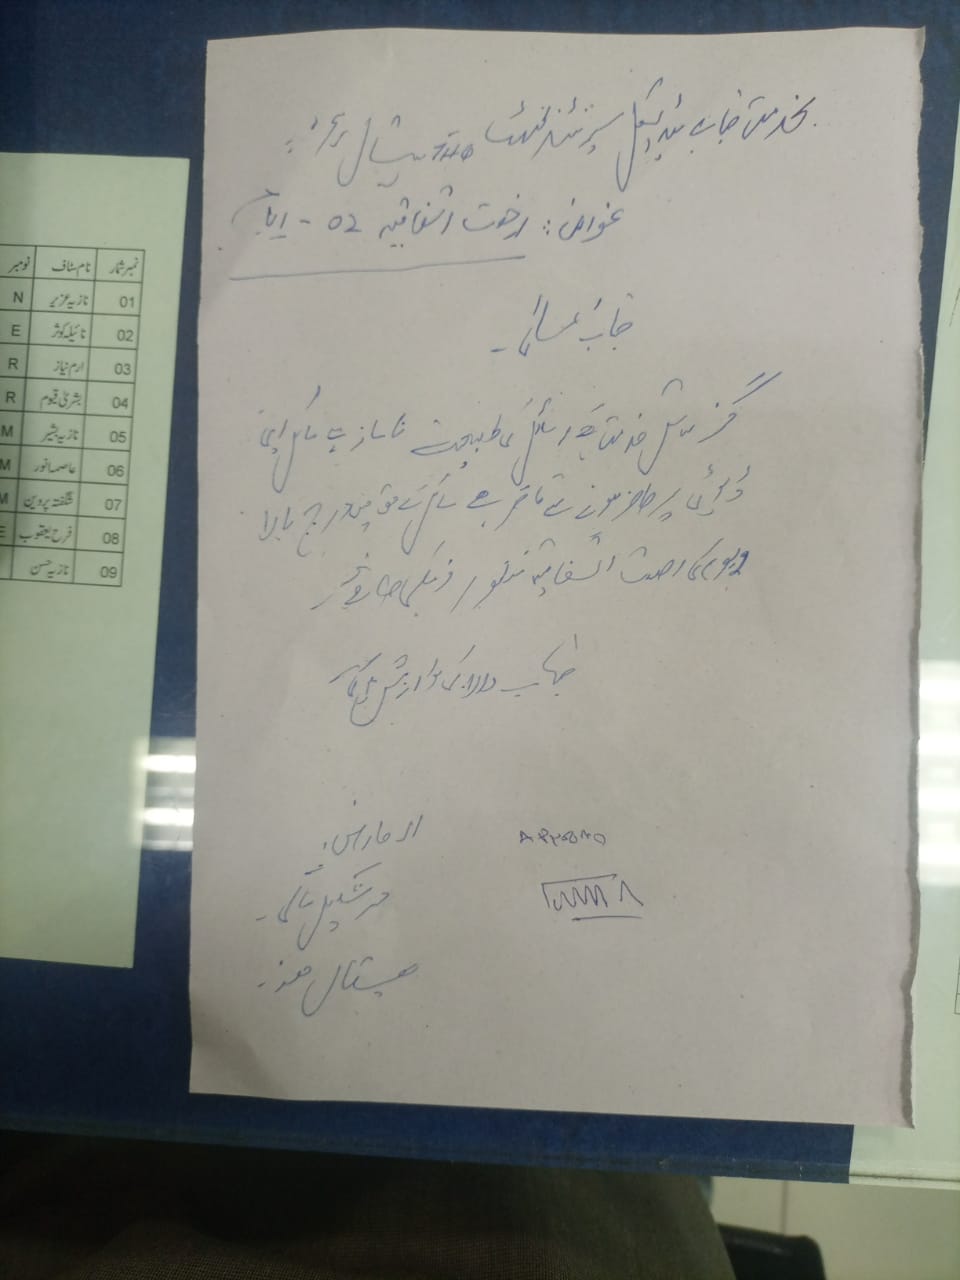 بخدمت جناب میڈیکل سپرنٹنڈنٹ THQ ہسپتال
عنوان: رخصت اتفاقیہ 02 - ایام
جناب عالی۔
گزارش خدمت ہے سائل کی طبیعت ناساز ہے سائل اپنی
ڈیوٹی پر حاضر ہونے سے قاصر ہے سائل کے حق میں درج بالا
2 یوم کی رخصت اتفاقیہ منظور فرمائی جائے
جناب والا کی نوازش ہوگی
العارض
ہسپتال ھذا۔
نمبر شمار نام سٹاف نومبر
01 نازیہ عزیز N
02 نائیلہ کوثر E
03 ارم نیاز R
04 بشریٰ قیوم R
05 نازیہ بشیر M
06 عاصمہ انور M
07 شگفتہ پروین M
08 فرح یعقوب E
09 نازیہ حسن